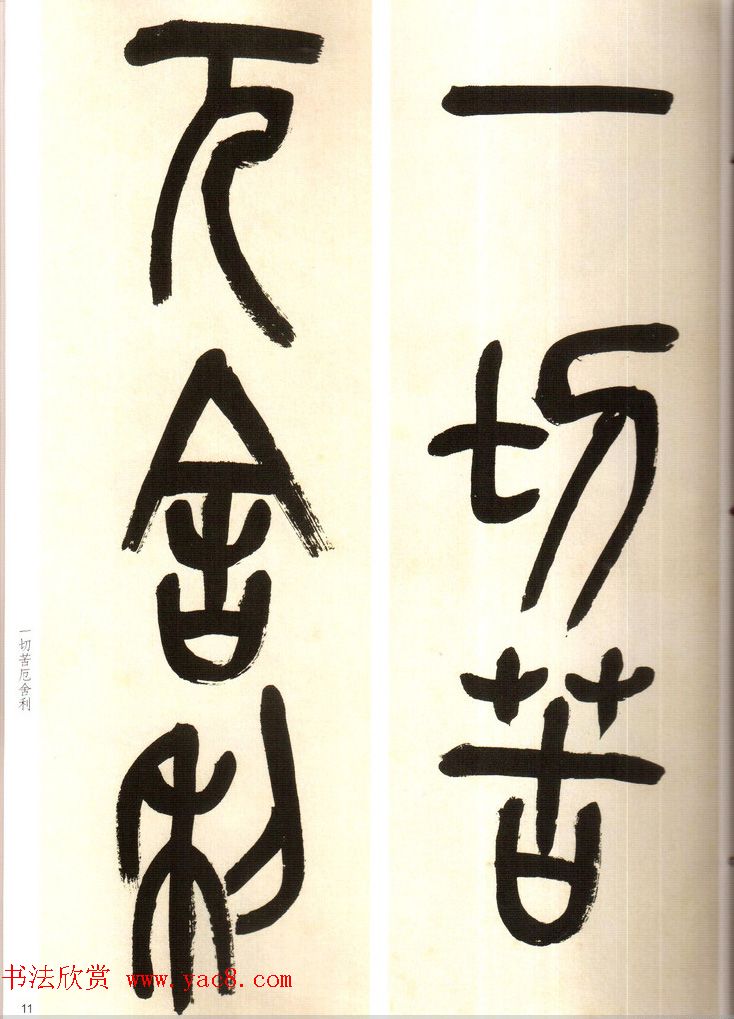 一切苦
厄舍利
一切苦厄舍利
书法欣赏 www.yac8.com
11